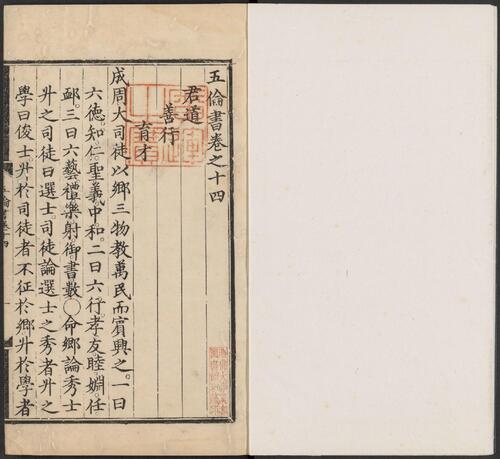 五倫書卷之十四
君道
善行
育才
成周大司徒以鄉三物教萬民而賓興之。一曰
六德。知仁。聖義中和。二曰六行。孝友睦婣。任
䘏。三曰六藝。禮樂射御書數〇命鄉論秀士
升之司徒曰選士。司徒論選士之秀者升之
學曰俊士。升於司徒者不征於鄉升於學者